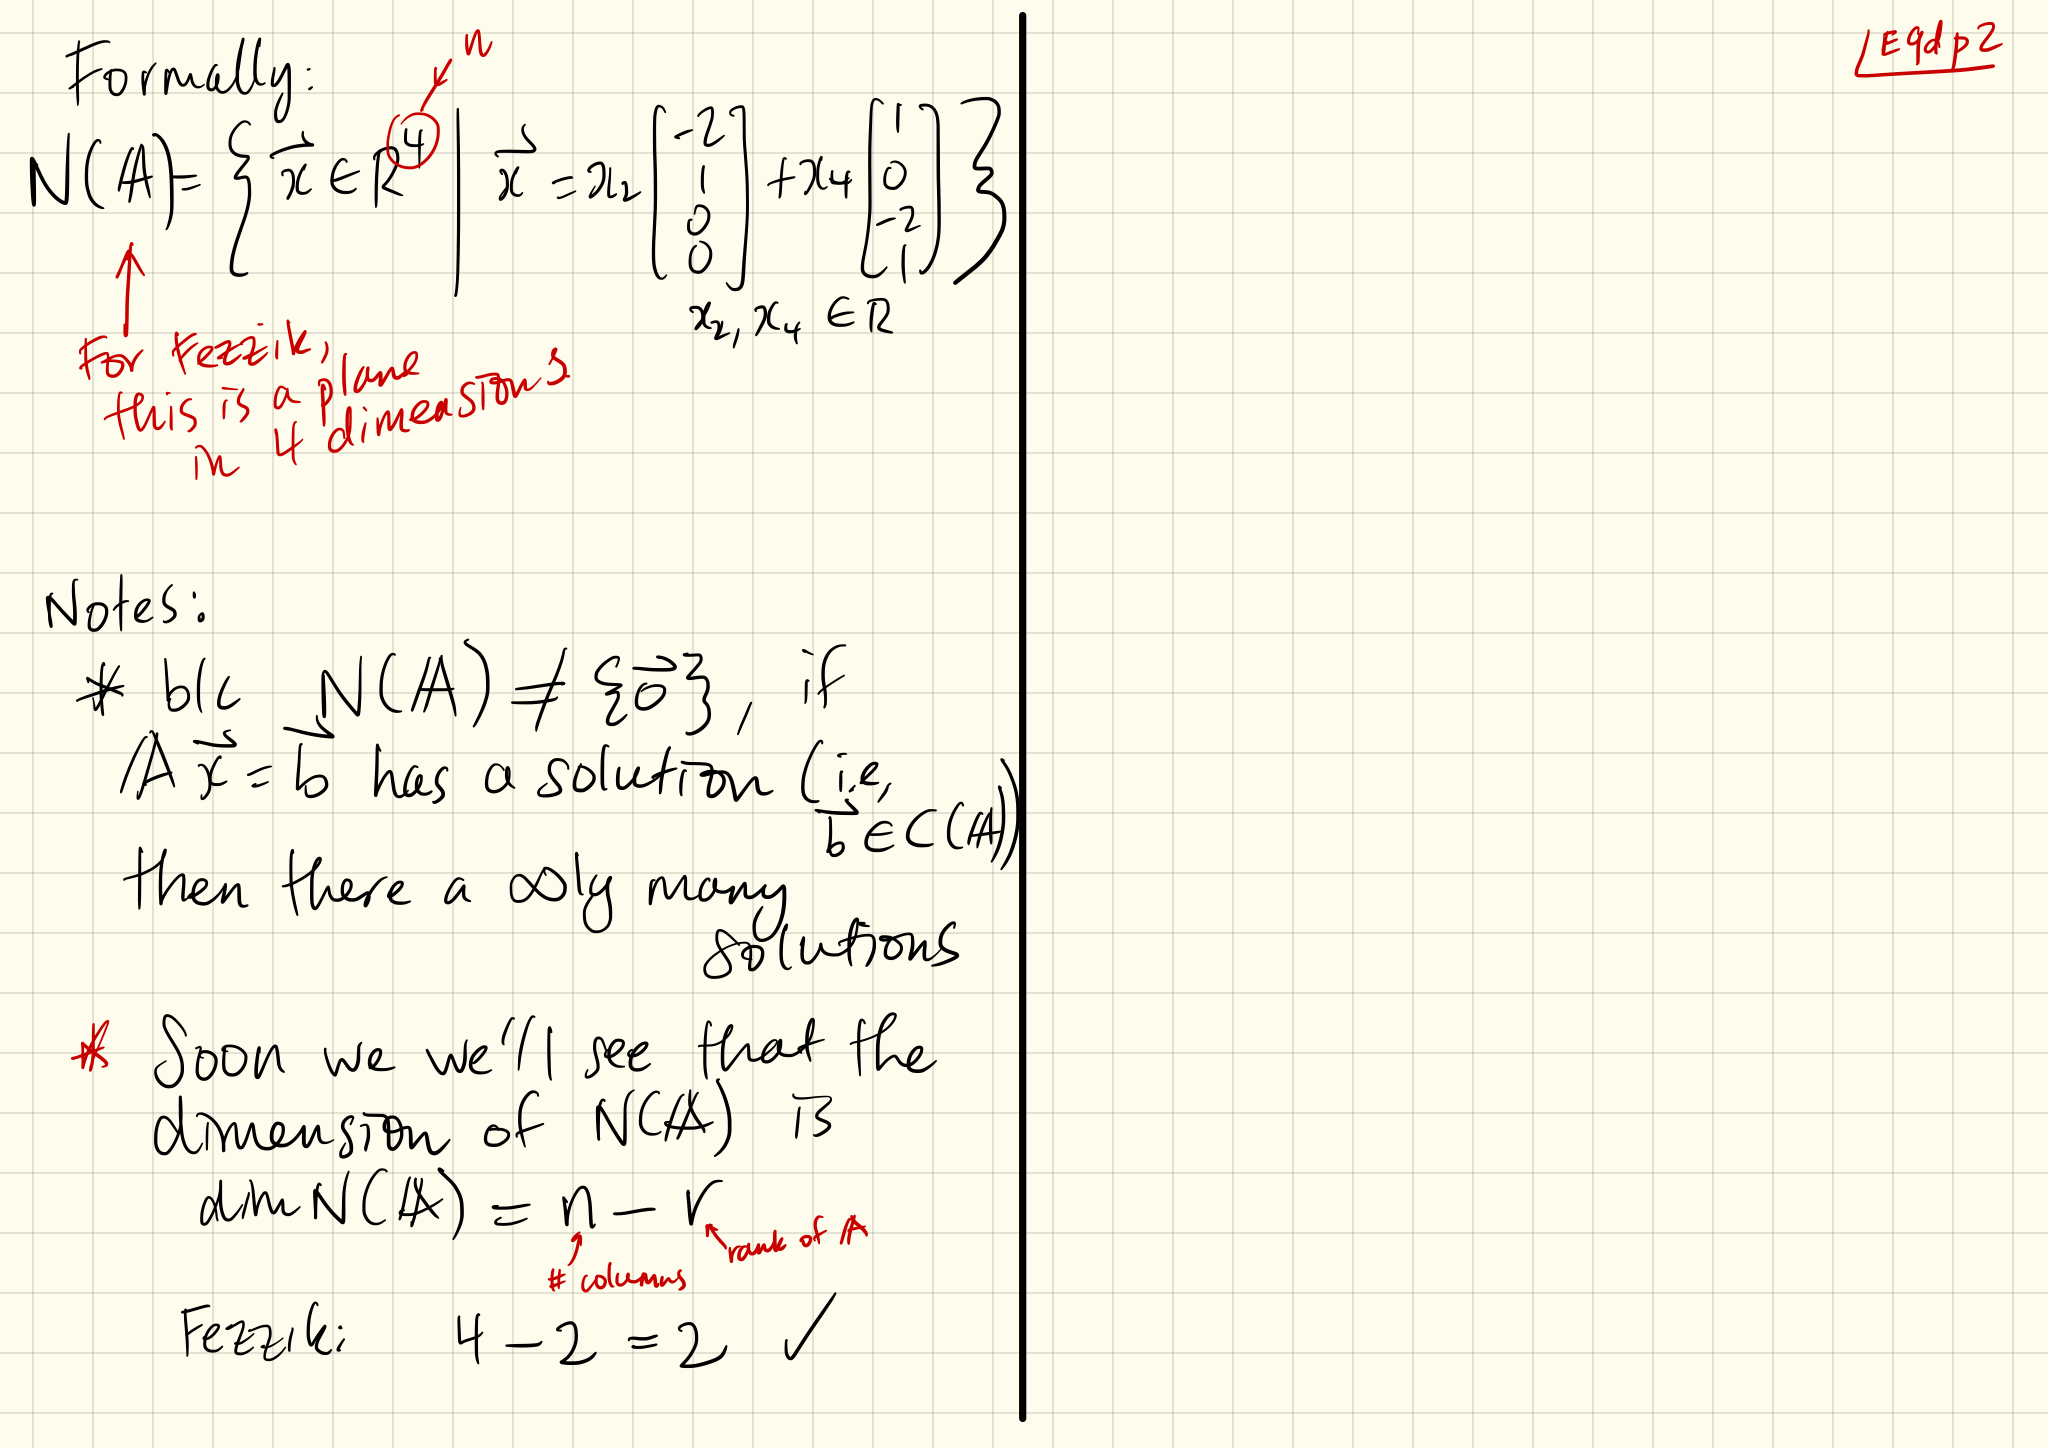 E9dp2
Formally:
n
N(A) = { x⃗ ∈ R⁴ | x⃗ = x₂ [-2 1 0 0] + x₄ [1 0 -2 1] }
x₂, x₄ ∈ R
For Fezzik,
this is a plane
in 4 dimensions
Notes:
* b/c N(A) ≠ {0⃗}, if
A x⃗ = b⃗ has a solution (i.e,
b⃗ ∈ C(A))
then there a ∞ly many
solutions
* Soon we we'll see that the
dimension of N(A) is
dim N(A) = n - r
rank of A
# columns
Fezzik: 4 - 2 = 2 ✓